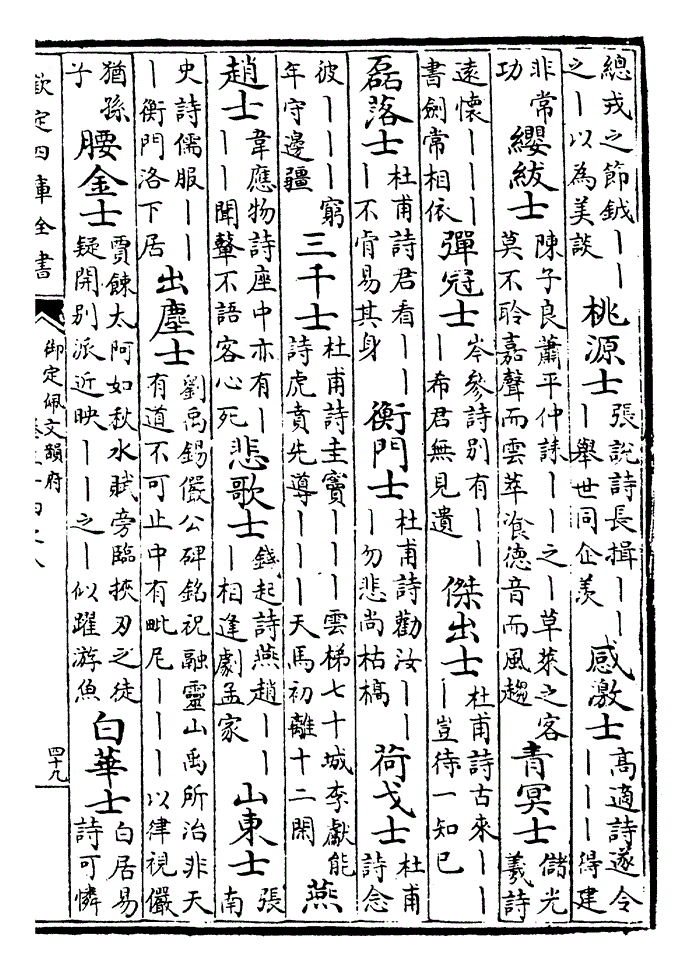 總戎之節鉞丨丨
之丨以為美談
桃源士
張說詩長揖丨丨
丨舉世同企羨
感激士
高適詩遂令
丨丨丨得建
非常
功
纓紱士
陳子良蕭平仲誄丨丨之丨草萊之客
莫不聆嘉聲而雲萃飡德音而風趨
青冥士
儲光
羲詩
遠懷丨丨丨
書劍常相依
彈冠士
岑參詩别有丨丨
丨希君無見遺
傑出士
杜甫詩古來丨丨
丨豈待一知已
磊落士
杜甫詩君看丨丨
丨不肯易其身
衡門士
杜甫詩勸汝丨丨
丨勿悲尚枯槁
荷戈士
杜甫
詩念
彼丨丨丨窮
年守邊疆
三千士
杜甫詩圭竇丨丨丨丨雲梯七十城李獻能
詩虎賁先導丨丨丨天馬初離十二閑
燕
趙士
韋應物詩座中亦有丨
丨丨聞鼙不語客心死
悲歌士
錢起詩燕趙丨丨
丨相逢劇孟家
山東士
張
南
史詩儒服丨丨
丨衡門洛下居
出塵士
劉禹錫儼公碑銘祝融靈山禹所治非天
有道不可止中有毗尼丨丨丨以律視儼
猶孫
子
腰金士
賈餗太阿如秋水賦旁臨挾刃之徒
疑開别派近映丨丨之丨似躍游魚
白華士
白居易
詩可憐
欽定四庫全書
御定佩文韻府
四十九